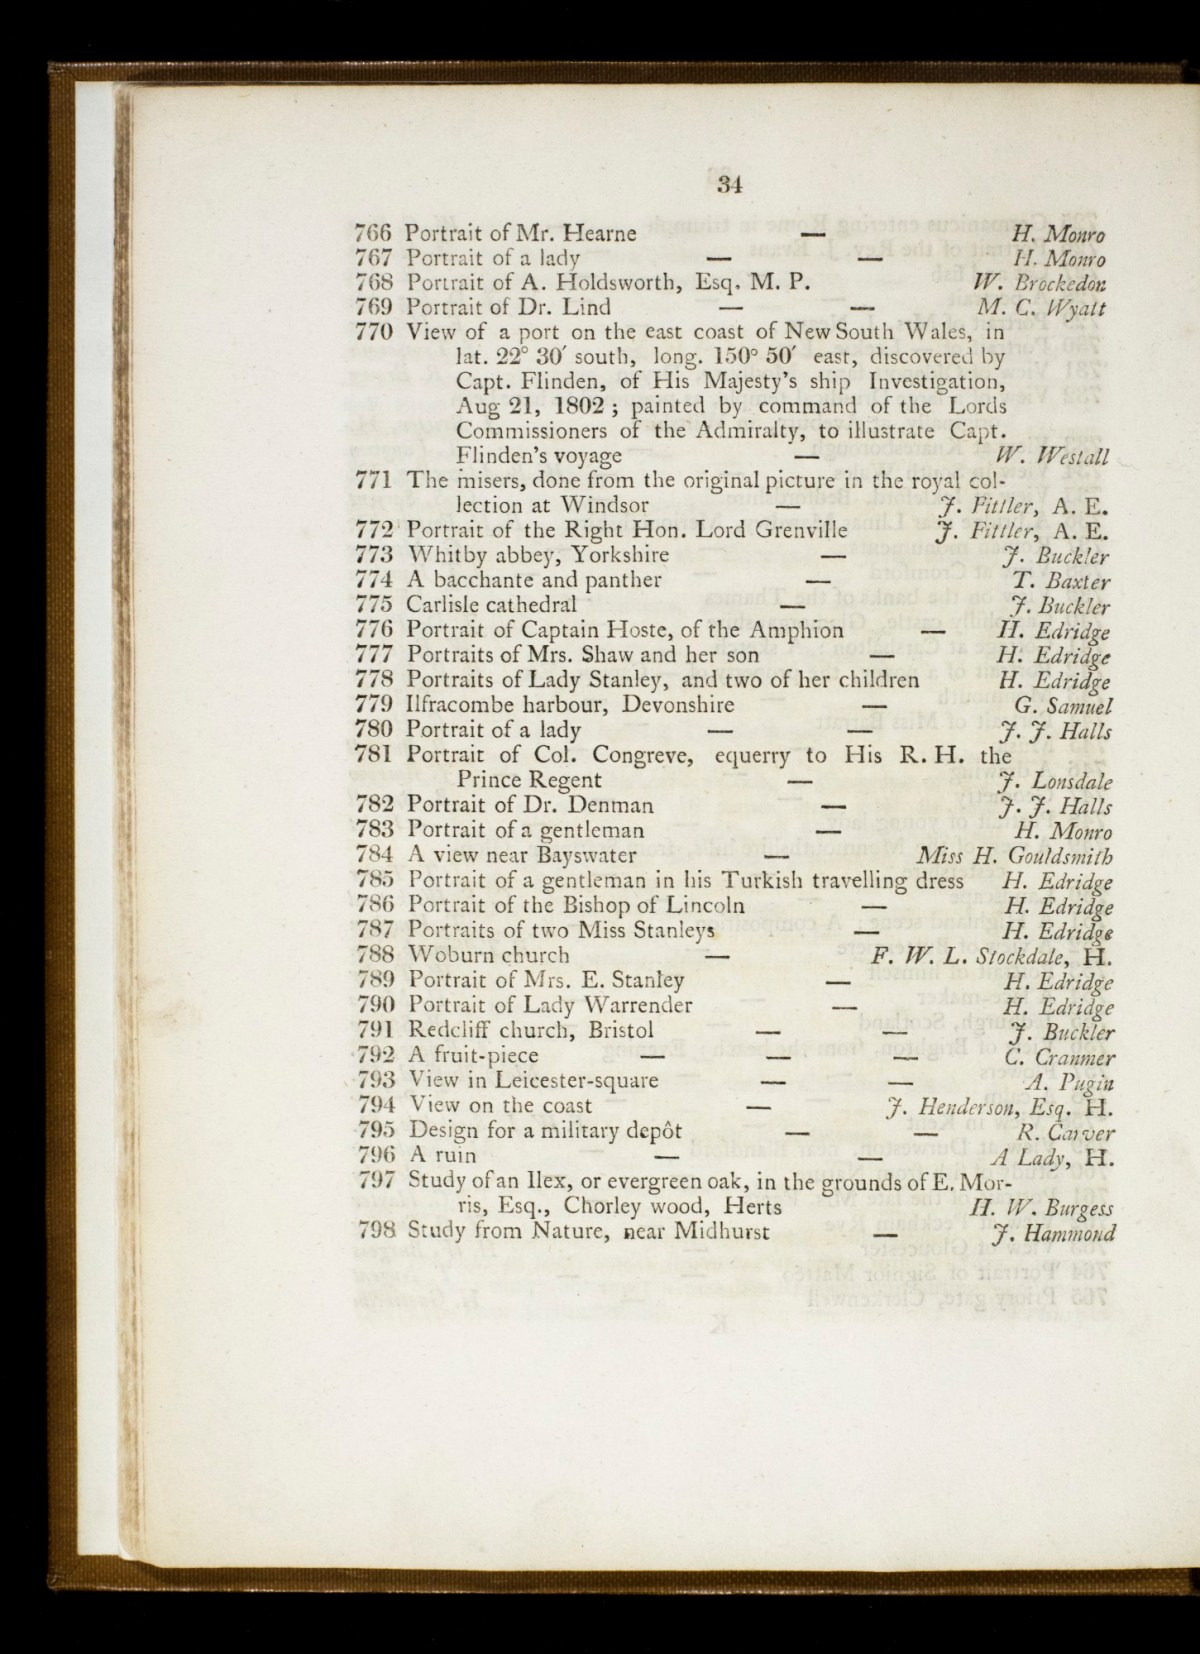 34
766 Portrait of Mr. Hearne — H. Monro
767 Portrait of a lady — — H. Monro
768 Portrait of A. Holdsworth, Esq. M. P. W. Brockedon
769 Portrait of Dr. Lind — — M. C. Wyatt
770 View of a port on the east coast of New South Wales, in
lat. 22° 30′ south, long. 150° 50′ east, discovered by
Capt. Flinden, of His Majesty's ship Investigation,
Aug 21, 1802 ; painted by command of the Lords
Commissioners of the Admiralty, to illustrate Capt.
Flinden's voyage — W. Westall
771 The misers, done from the original picture in the royal col-
lection at Windsor — J. Fittler, A. E.
772 Portrait of the Right Hon. Lord Grenville J. Fittler, A. E.
773 Whitby abbey, Yorkshire — J. Buckler
774 A bacchante and panther — T. Baxter
775 Carlisle cathedral — J. Buckler
776 Portrait of Captain Hoste, of the Amphion — H. Edridge
777 Portraits of Mrs. Shaw and her son — H. Edridge
778 Portraits of Lady Stanley, and two of her children H. Edridge
779 Ilfracombe harbour, Devonshire — G. Samuel
780 Portrait of a lady — — J. J. Halls
781 Portrait of Col. Congreve, equerry to His R. H. the
Prince Regent — J. Lonsdale
782 Portrait of Dr. Denman — J. J. Halls
783 Portrait of a gentleman — H. Monro
784 A view near Bayswater — Miss H. Gouldsmith
785 Portrait of a gentleman in his Turkish travelling dress H. Edridge
786 Portrait of the Bishop of Lincoln — H. Edridge
787 Portraits of two Miss Stanleys — H. Edridge
788 Woburn church — F. W. L. Stockdale, H.
789 Portrait of Mrs. E. Stanley — H. Edridge
790 Portrait of Lady Warrender — H. Edridge
791 Redcliff church, Bristol — — J. Buckler
792 A fruit-piece — — — C. Cranmer
793 View in Leicester-square — — A. Pugin
794 View on the coast — J. Henderson, Esq. H.
795 Design for a military depôt — — R. Carver
796 A ruin — — A Lady, H.
797 Study of an Ilex, or evergreen oak, in the grounds of E. Mor-
ris, Esq., Chorley wood, Herts H. W. Burgess
798 Study from Nature, near Midhurst — J. Hammond